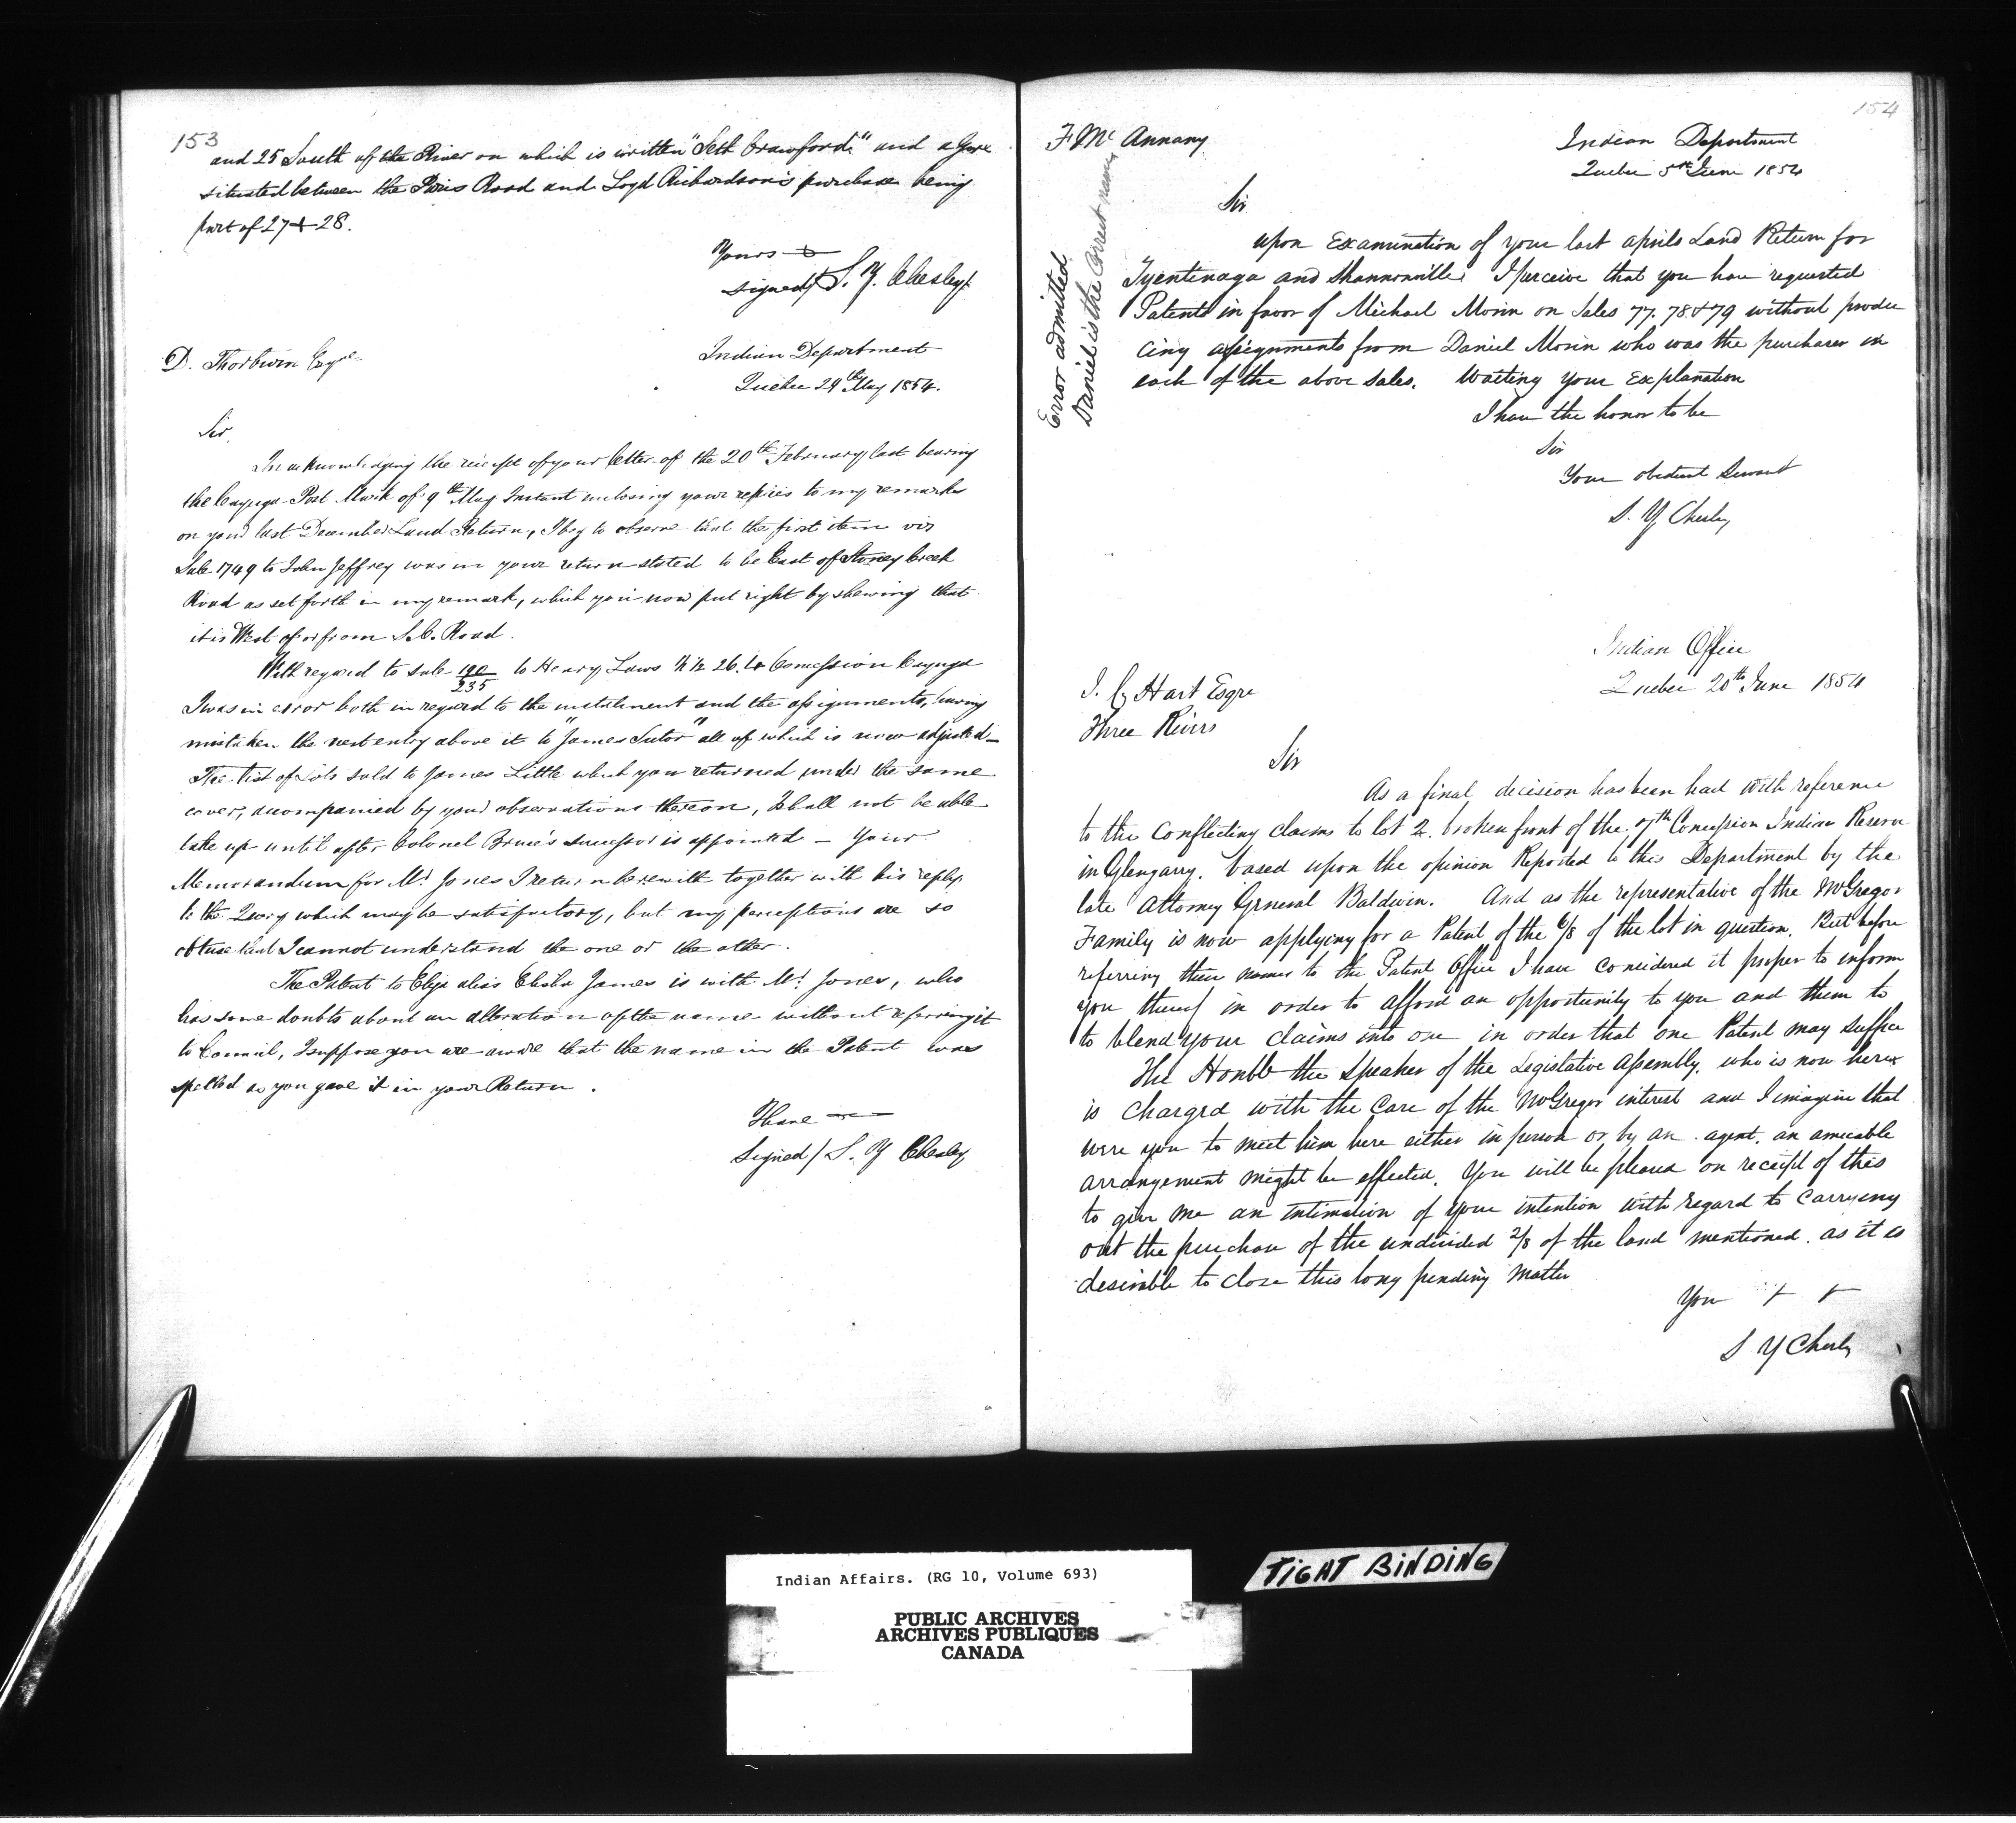 153
and 25 South of the River on which is written "Seth Crawford" and a Gore
situated between the Paris Road and Loyd Richardson's purchase being
part of 27 + 28.
Yours
signed/ S. Y. Chesley/.
D. Thorburn Esqre
Indian Department
Quebec 29th May 1854.
Sir,
In acknowledging the receipt of your letter of the 20th February last bearing
the Cayuga Post Mark of 9th May Instant inclosing your replies to my remarks
on your last December Land Return, I beg to observe that the first item viz
Sale 1749 to John Jeffrey was in your return stated to be East of Stoney Creek
Road as set forth in my remark, which you now put right by shewing that
it is West of or from S.C. Road.
With regard to sale 190/235 to Henry Laws N ½ 26. 4 Concession Cayuga
I was in error both in regard to the instalment and the assignments, having
mistaken the next entry above it to "James Sutor" all of which is now adjusted—
The list of Lots sold to James Little which you returned under the same
cover, accompanied by your observations thereon, I shall not be able
take up until after Colonel Bruce's successor is appointed — Your
Memorandum for Mr Jones I return herewith together with his reply
to the Query which may be satisfactory, but my perceptions are so
obtuse that I cannot understand the one or the other.
The Patent to Elija alias Elisha James is with Mr Jones, who
has some doubts about an alteration of the name without referring it
to Council, I suppose you are aware that the name in the Patent was
spelled as you gave it in your Return.
I have
Signed/ S. Y Chesley
154
F Mc Annany
Indian Department
Quebec 5th June 1854
Error admitted
Daniel is the Correct name
Sir
Upon Examination of your last aprils Land Return for
Tyentenaga and Shannonville I perceive that you have requested
Patents in favor of Michael Morin on Sales 77. 78 & 79 without produ
cing assignments from Daniel Morin who was the purchaser in
each of the above sales. Waiting your Explanation
I have the honor to be
Sir
Your obedient Servant
S. Y Chesley
Indian Office
Quebec 20th June 1854
I. C Hart Esqre
Three Rivers
Sir
As a final decision has been had with reference
to the conflicting claims to lot 2. broken front of the 7th Concession Indian Reserve
in Glengarry. based upon the opinion Reported to this Department by the
late Attorney General Baldwin. And as the representative of the McGregor
Family is now applying for a Patent of the 6/8 of the lot in question. But before
referring their names to the Patent Office I have considered it proper to inform
you thereof in order to afford an opportunity to you and them to
to blend your claims into one in order that one Patent may suffice
The Honble the Speaker of the Legislative Assembly, who is now here
is charged with the Care of the McGregor interest and I imagine that
were you to meet him here either in person or by an agent. an amicable
arrangement might be effected. You will be pleased on receipt of this
to give me an intimation of your intention with regard to carrying
out the purchase of the undivided 2/8 of the land mentioned. as it is
desirable to close this long pending matter
Your + +
S Y Chesley
Indian Affairs. (RG 10, Volume 693)
PUBLIC ARCHIVES
ARCHIVES PUBLIQUES
CANADA
TIGHT BINDING